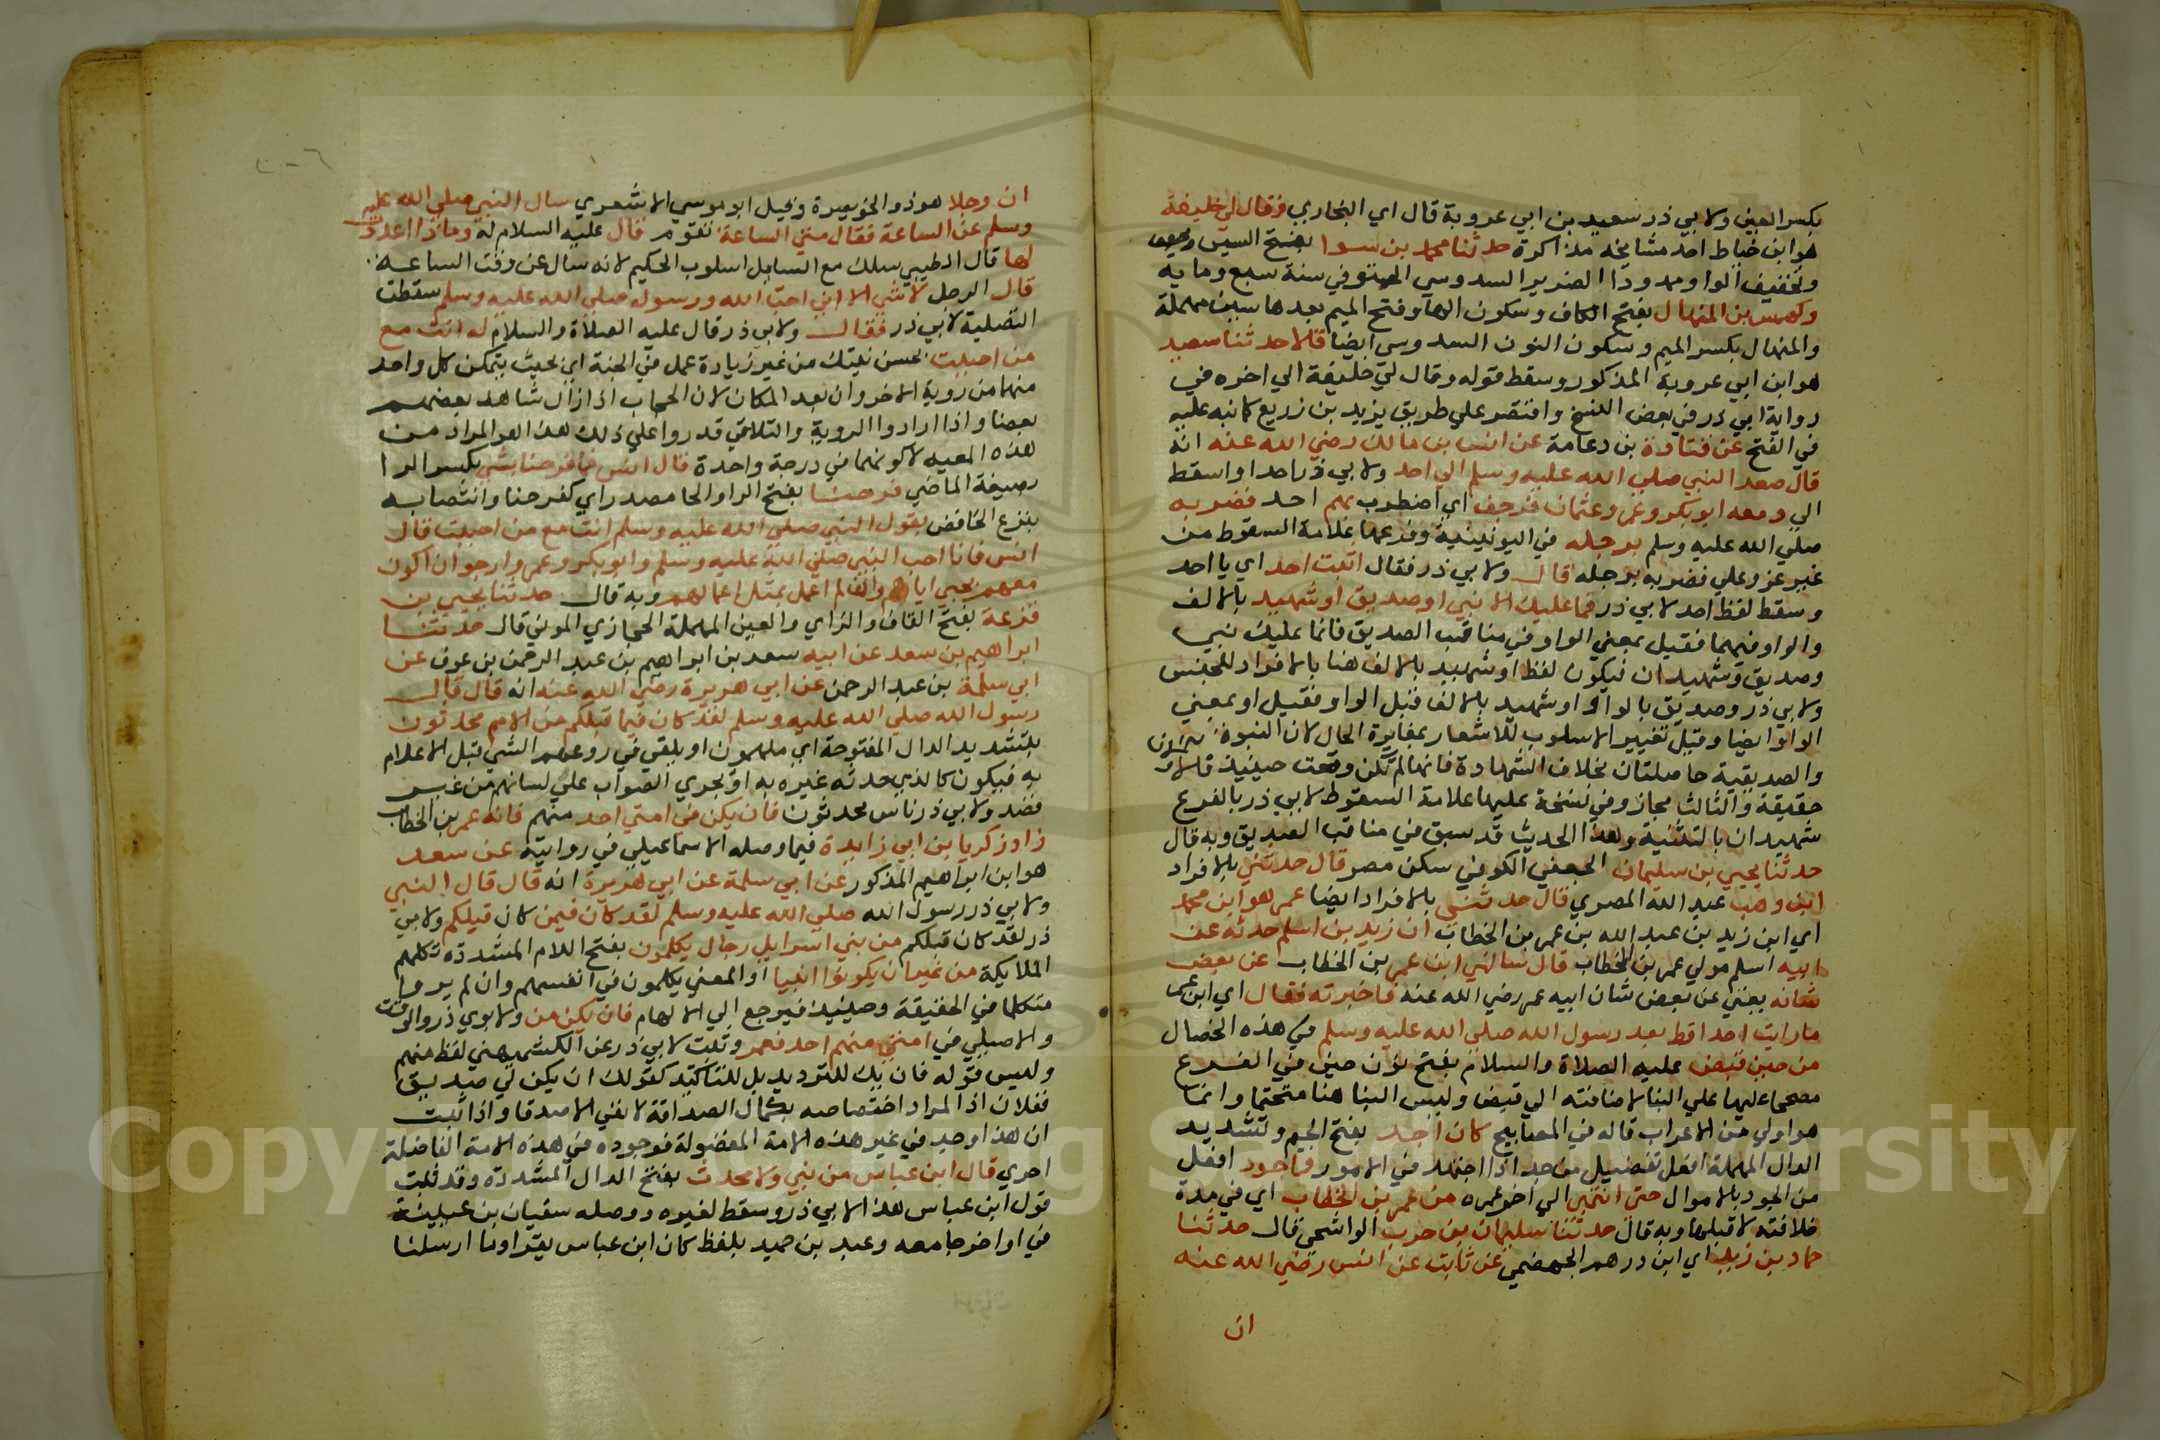 بكسر العين ولابي ذر سعيد بن ابي عروبة قال اي البخاري فقال لي خليفة
هو ابن خياط احد مشايخه مذاكرة حدثنا محمد بن سوا بفتح السين
وتخفيف الواو ممدودا الضرير السدوسي المتوفي سنة سبع وماية
وكهمس بن المنهال بفتح الكاف وسكون الهاء وفتح الميم بعدها سين مهملة
والمنهال بكسر الميم وسكون النون السدوسي ايضا قالا حدثنا سعيد
هو ابن ابي عروبة المذكور وسقط قوله وقال لي خليفة الي اخره في
رواية ابي ذر في بعض النسخ واقتصر علي طريق يزيد بن زريع كما نبه عليه
في الفتح عن قتادة بن دعامة عن انس بن مالك رضي الله عنه انه
قال صعد النبي صلي الله عليه وسلم الي احد ولابي ذر احدا واسقط
الي ومعه ابو بكر وعمر وعثمان فرجف اي اضطرب بهم احد فضربه
صلي الله عليه وسلم برجله في اليونينية وفرعها علامة السقوط من
غير عزو علي فضربه برجله قال ولابي ذر فقال اثبت احد اي يا احد
وسقط لفظ احد لابي ذر فما عليك الا نبي او صديق او شهيد بالالف
والواو فيهما فقيل بمعني الواو في مناقب الصديق فانما عليك نبي
وصديق وشهيدان فيكون لفظ او شهيد بالالف هنا بالافراد للجنس
ولابي ذر وصديق بالواو او شهيد بالالف قبل الواو فقيل او بمعني
الواو ايضا وقيل تغيير الاسلوب للاشعار بمغايرة الحال لان النبوة
والصديقية حاصلتان بخلاف الشهادة فانها لم تكن وقعت حينيذ فالاولان
حقيقة والثالث مجاز وفي نسخة عليها علامة السقوط لابي ذر بالفرع
شهيدان بالتثنية وهذا الحديث قد سبق في مناقب الصديق وبه قال
حدثنا يحيي بن سليمان الجعفي الكوفي سكن مصر قال حدثني بالافراد
ابن وهب عبد الله المصري قال حدثني بالافراد ايضا عمر هو ابن محمد
اي ابن زيد بن عبد الله بن عمر بن الخطاب ان زيد بن اسلم حدثه عن
ابيه اسلم مولي عمر بن الخطاب قال سالني ابن عمر بن الخطاب عن بعض
شانه يعني عن بعض شان ابيه عمر رضي الله عنه فاخبرته فقال اي ابن عمر
ما رايت احدا قط بعد رسول الله صلي الله عليه وسلم في هذه الخصال
من حين قبض عليه الصلاة والسلام بفتح نون حين في الفرع
مصححا عليها علي البنا لاضافته الي قبض وليس البنا هنا متحتما وانما
هو اولي من الاعراب قاله في المصابيح كان اجد بفتح الجيم وتشديد
الدال المهملة افعل تفضيل من جد اذا اجتهد في الامور واجود افعل
من الجود بالاموال حتي انتهي الي اخر عمره من عمر بن الخطاب اي في مدة
خلافته لا قبلها وبه قال حدثنا سليمان بن حرب الواشحي قال حدثنا
حماد بن زيد اي ابن درهم الجهضمي عن ثابت عن انس رضي الله عنه
ان
ان رجلا هو ذو الخويصرة وقيل ابو موسي الاشعري سال النبي صلي الله عليه
وسلم عن الساعة فقال متي الساعة تقوم قال عليه السلام له وماذا اعددت
لها قال الطيبي سلك مع السايل اسلوب الحكيم لانه سال عن وقت الساعة
قال الرجل لا شي الا اني احب الله ورسوله صلي الله عليه وسلم سقطت
التصلية لابي ذر فقال ولابي ذر قال عليه الصلاة والسلام له انت مع
من احببت بحسن نيتك من غير زيادة عمل في الجنة اي بحيث يتمكن كل واحد
منهما من روية الاخر وان بعد المكان لان الحجاب اذا زال شاهد بعضهم
بعضا واذا ارادوا الروية والتلاقي قدروا علي ذلك هذا هو المراد من
هذه المعية لا كونهما في درجة واحدة قال انس فما فرحنا بشي بكسر الرا
بصيغة الماضي فرحنا بفتح الرا والحا مصدر اي كفرحنا وانتصابه
بنزع الخافض بقول النبي صلي الله عليه وسلم انت مع من احببت قال
انس فانا احب النبي صلي الله عليه وسلم وابو بكر وعمر وارجو ان اكون
معهم بحبي اياهم وان لم اعمل بمثل اعمالهم وبه قال حدثنا يحيي بن
قزعة بفتح القاف والزاي والعين المهملة الحجازي المدني قال حدثنا
ابراهيم بن سعد عن ابيه سعد بن ابراهيم بن عبد الرحمن بن عوف عن
ابي سلمة بن عبد الرحمن عن ابي هريرة رضي الله عنه انه قال قال
رسول الله صلي الله عليه وسلم لقد كان فيما قبلكم من الامم محدثون
بتشديد الدال المفتوحة اي ملهمون او يلقي في روعهم الشي قبل الاعلام
به فيكون كالذي حدثه غيره به او يجري الصواب علي لسانهم من غير
قصد ولابي ذر ناس محدثون فان يكن في امتي احد منهم فانه عمر بن الخطاب
زاد زكريا بن ابي زايدة فيما وصله الاسماعيلي في روايته عن سعد
هو ابن ابراهيم المذكور عن ابي سلمة عن ابي هريرة انه قال قال النبي
ولابي ذر رسول الله صلي الله عليه وسلم لقد كان فيمن كان قبلكم ولابي
ذر لقد كان قبلكم من بني اسرايل رجال يكلمون بفتح اللام المشددة تكلمهم
الملايكة من غير ان يكونوا انبيا او المعني يكلمون في انفسهم وان لم يروا
متكلما في الحقيقة وحينيذ فيرجع الي الالهام فان يكن من ولابوي ذر والوقت
والاصيلي في امتي منهم احد فعمر وثبت لابي ذر عن الكشميهني لفظ منهم
وليس قوله فان يك للترديد بل للتاكيد كقولك ان يكن لي صديق
ففلان اذ المراد اختصاصه بكمال الصداقة لا نفي الاصدقا واذا ثبت
ان هذا وجد في غير هذه الامة المفضولة فوجوده في هذه الامة الفاضلة
احري قال ابن عباس من نبي ولا محدث بفتح الدال المشددة وقد ثبت
قول ابن عباس هذا لابي ذر وسقط لغيره ووصله سفيان بن عيينة
في اواخر جامعه وعبد بن حميد بلفظ كان ابن عباس يقرا وما ارسلنا
Copyright © King Saud University